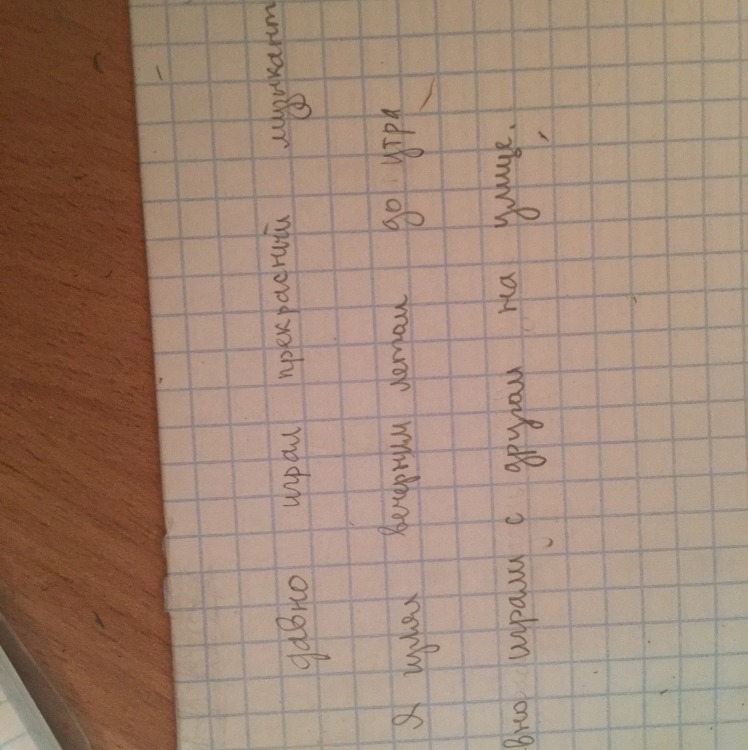 давно играл прекрасный музыкант
Я гулял вечерним летам до утра
вно играли с другам на улице.